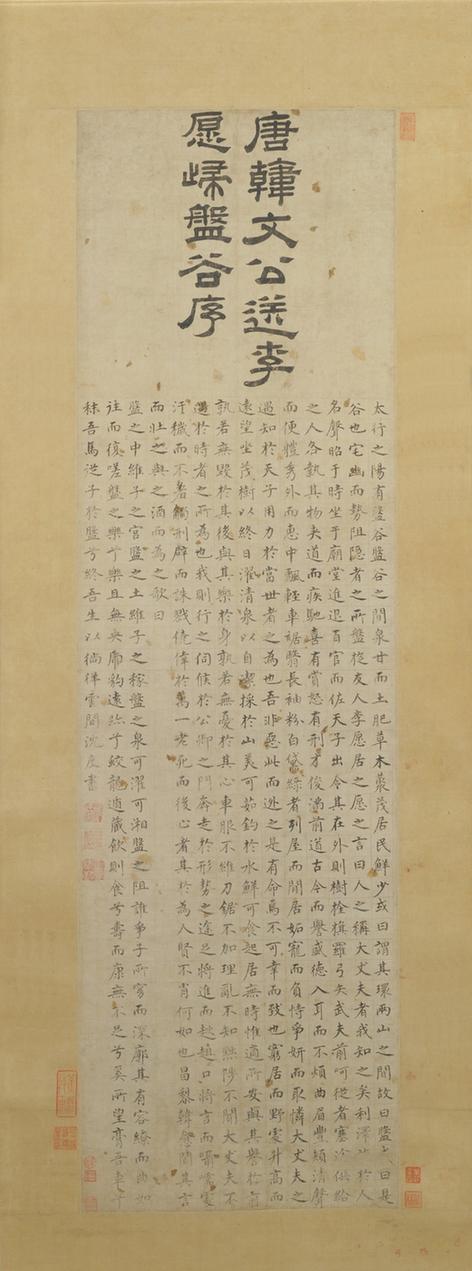 唐韓文公送李
愿歸盤谷序
太行之陽有盤谷盤谷之間泉甘而土肥草木藂茂居民鮮少或曰謂其環兩山之間故曰盤或曰是
谷也宅幽而勢阻隱者之所盤旋友人李愿居之愿之言曰人之稱大丈夫者我知之矣利澤施於人
名聲昭于時坐于廟堂進退百官而佐天子出令其在外則樹旗旄羅弓矢武夫前呵從者塞途供給
之人各執其物夾道而疾馳喜有賞怒有刑才俊滿前道古今而譽盛德入耳而不煩曲眉豐頰清聲
而便體秀外而惠中飄輕裾翳長袖粉白黛綠者列屋而閒居妬寵而負恃爭妍而取憐大丈夫之
遇知於天子用力於當世者之為也吾非惡此而逃之是有命焉不可幸而致也窮居而野處升高而
遠望坐茂樹以終日濯清泉以自潔採於山美可茹釣於水鮮可食起居無時惟適所安與其譽於前
孰若無毀於其後與其樂於身孰若無憂於其心車服不維刀鋸不加理亂不知黜陟不聞大丈夫不
遇於時者之所為也我則行之伺候於公卿之門奔走於形勢之途足將進而趑趄口將言而囁嚅處
汙穢而不羞觸刑辟而誅戮僥倖於萬一老死而後止者其於為人賢不肖何如也昌黎韓愈聞其言
而壯之與之酒而為之歌曰
盤之中維子之宮盤之土維子之稼盤之泉可濯可湘盤之阻誰爭子所窈而深廓其有容繚而曲如
往而復嗟盤之樂兮樂且無央虎豹遠跡兮蛟龍遁藏飲則食兮壽而康無不足兮奚所望膏吾車兮
秣吾馬從子於盤兮終吾生以徜徉雲間沈度書